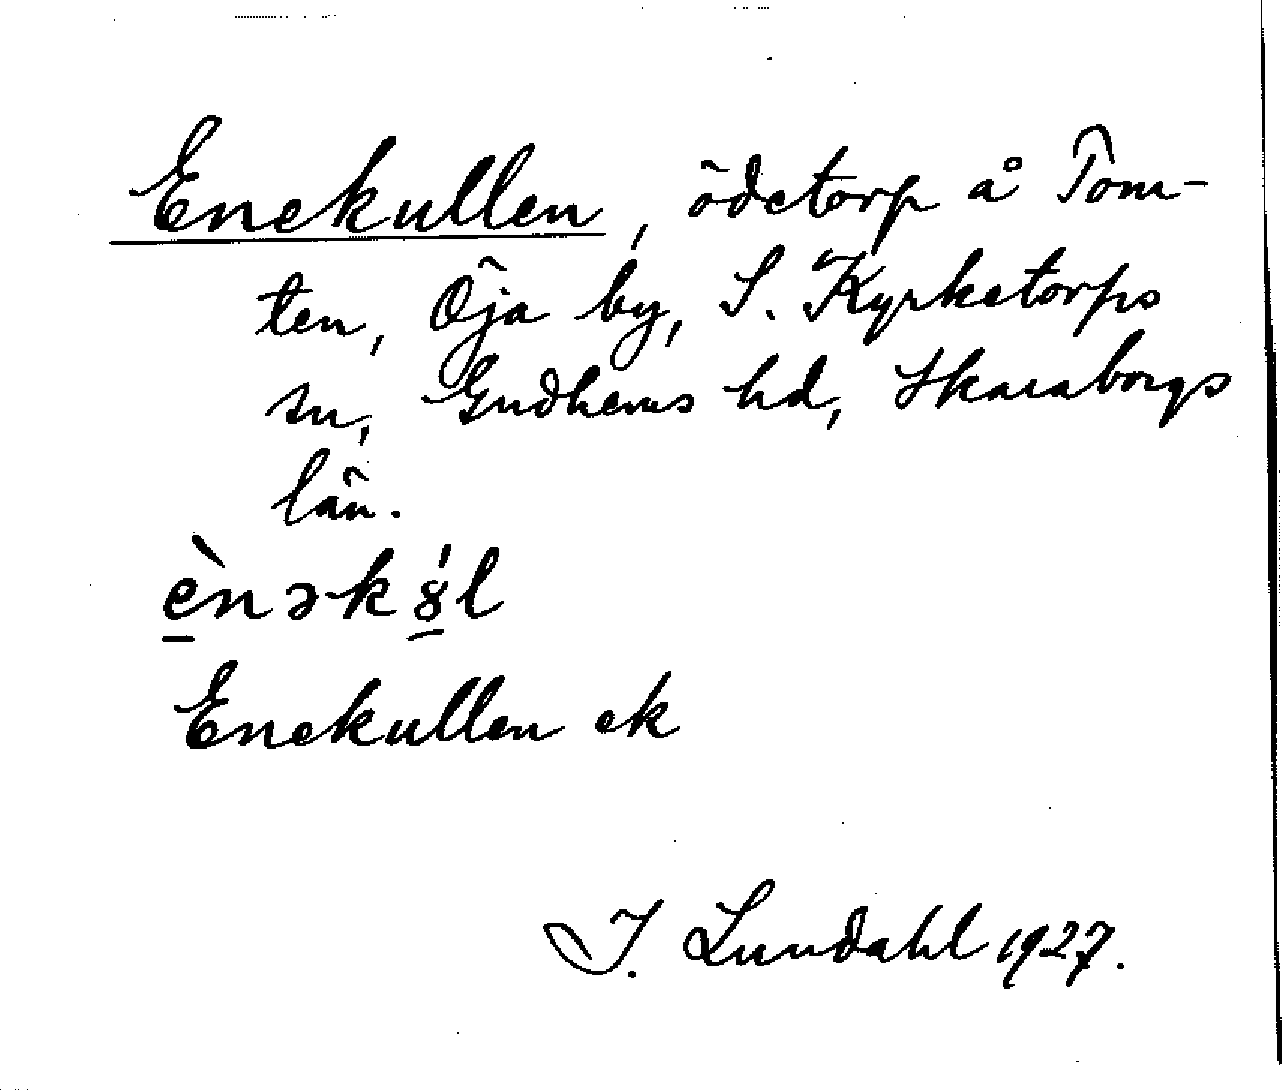 Enekullen, ödetorp å Tom-
ten, Öja by, S. Kyrketorps
sn, Gudhems hd, Skaraborgs
län.
è̱nəkȣ̱́l
Enekullen ek
I. Lundahl 1927.